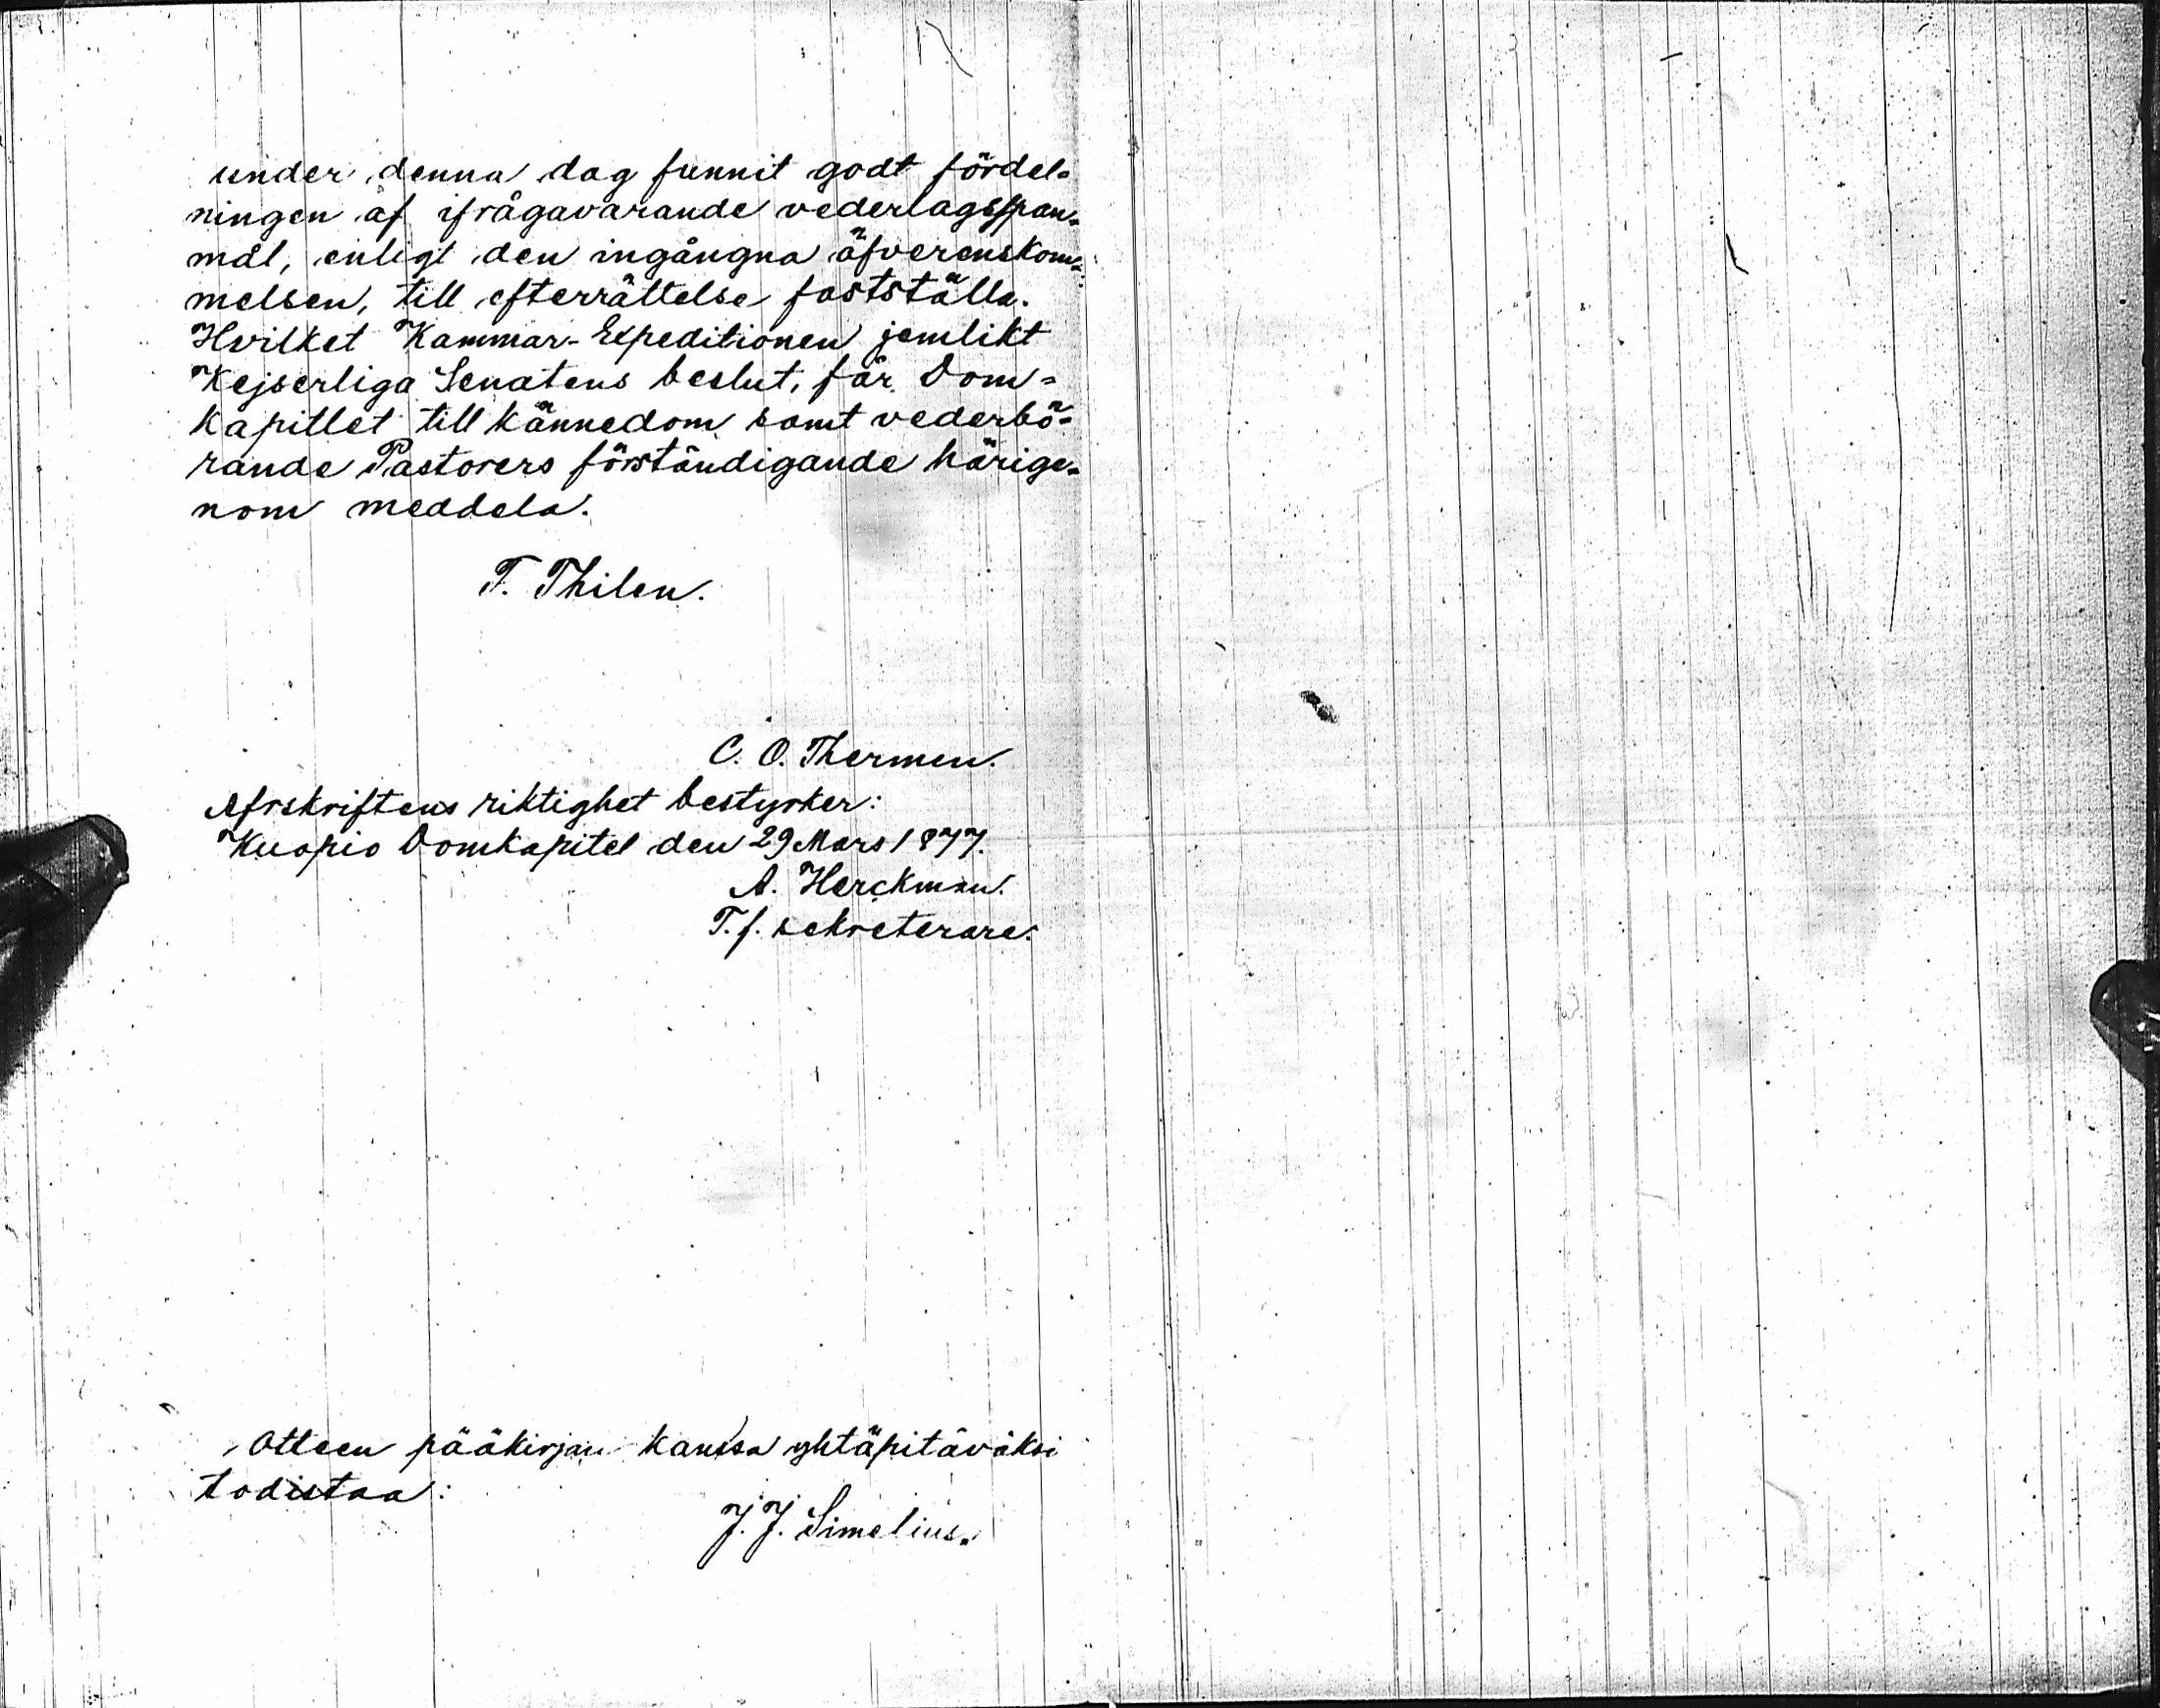 under denna dag funnit godt fördel=
ningen af ifrågavarande vederlagsspan=
mål, enligt den ingångna öfverenskom=
melsen, till efterrättelse fastställa.
Hvilket Kammar-Expeditionen jemlikt
Kejserliga Senatens beslut, får Dom=
kapitlet till kännedom samt vederbö=
rande Pastorers förständigande härige=
nom meddela.
T. Thilen.
C. O. Thermen.
Afvskriftens riktighet bestyrker:
Kuopio Domkapitel den 29 Mars 1877.
A. Herckman.
T. f. sekreterare.
Otteen pääkirjan kanssa yhtäpitäväksi
todistaa:
J. J. Simelius.